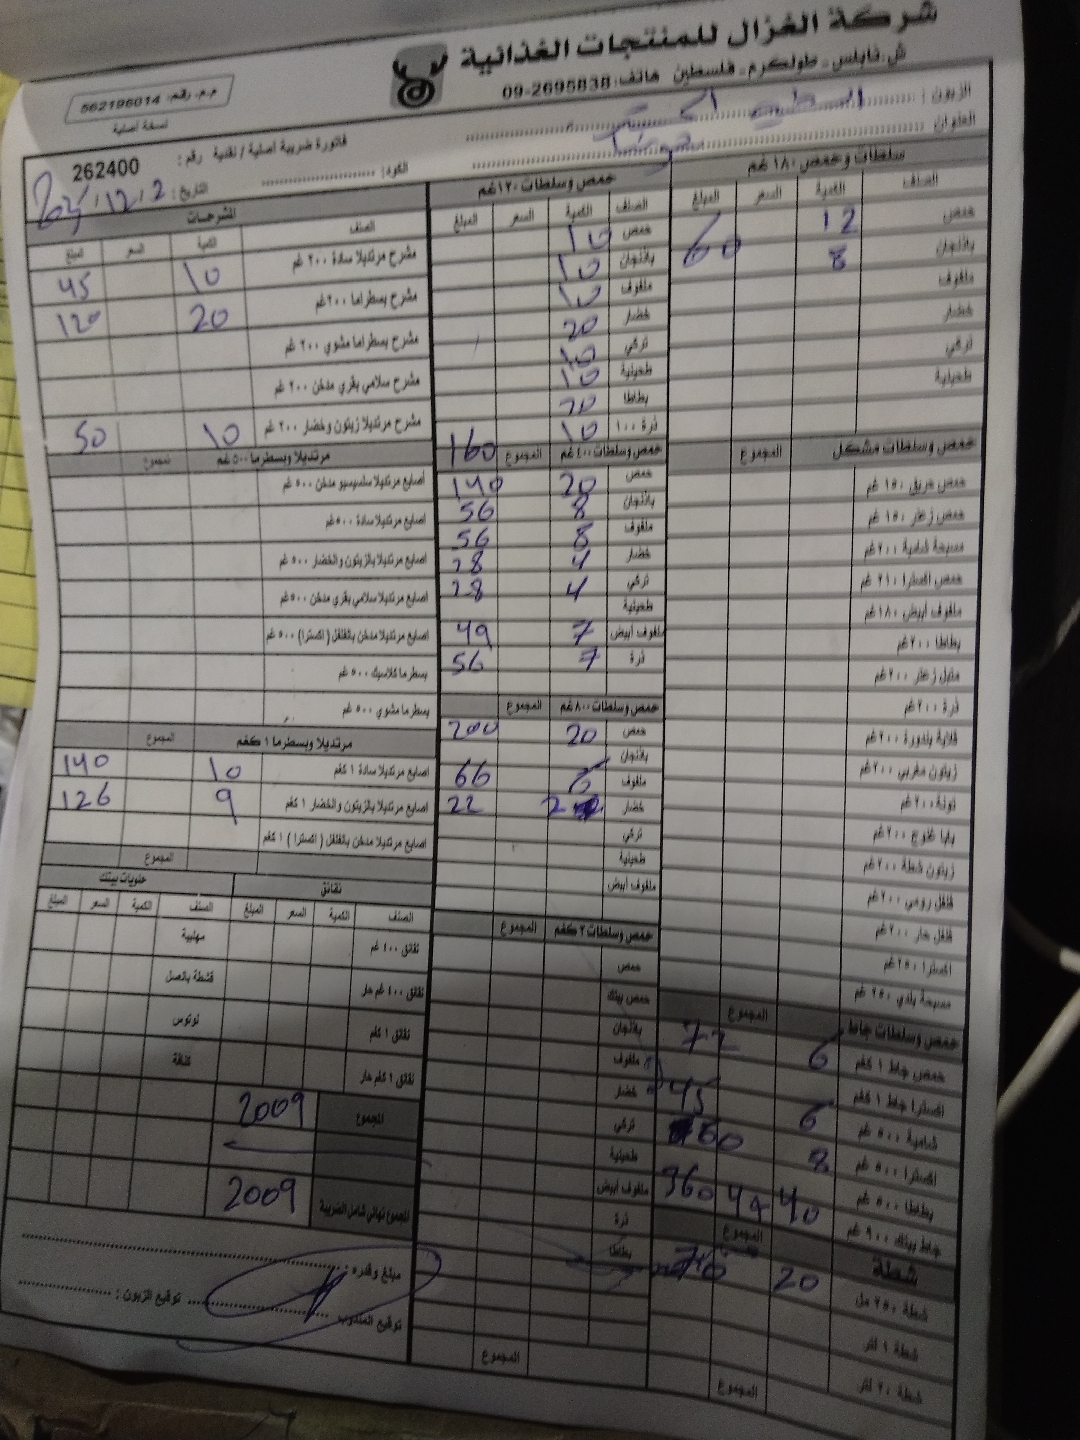 شركة الغزال للمنتجات الغذائية
ش. نابلس - طولكرم - فلسطين هاتف: 09-2695838
م.م. رقم: 562196014
نسخة أصلية
الزبون:
العنوان
فاتورة ضريبية أصلية / نقدية رقم: 262400
الكود:
التاريخ: 2 / 12 /
سلطات وحمص ١٨٠ غم
الصنف الكمية السعر المبلغ
حمص 12
باذنجان 8 60
ملفوف
خضار
تركي
طحينية
حمص وسلطات مشكل المجموع
حمص حريق ١٥٠ غم
حمص زعتر ١٥٠ غم
مسبحة شامية ٢٠٠ غم
حمص اكسترا ٢١٠ غم
ملفوف أبيض ١٨٠ غم
بطاطا ٢٠٠ غم
متبل زعتر ٢٠٠ غم
ذرة ٢٠٠ غم
قلاية بندورة ٢٠٠ غم
زيتون مغربي ٢٠٠ غم
تونة ٢٠٠ غم
بابا غنوج ٢٠٠ غم
زيتون شطة ٢٠٠ غم
فلفل رومي ٢٠٠ غم
فلفل حار ٢٠٠ غم
اكسترا ٢٥٠ غم
مسبحة بلدي ٢٥٠ غم
المجموع
حمص وسلطات جاط 72
حمص جاط ١ كغم 6
اكسترا جاط ١ كغم 45
شامية ٥٠٠ غم 6
اكسترا ٥٠٠ غم 8 60
بطاطا ٥٠٠ غم 40 360
جاط بيتك ٩٠٠ غم
شطة المجموع
شطة ٢٥٠ مل 20 70
شطة ١ لتر
شطة ٢٠ لتر
المجموع
حمص وسلطات ١٢٠ غم
الصنف الكمية السعر المبلغ
حمص 10
باذنجان 10
ملفوف 10
خضار 20
تركي 10
طحينية 10
بطاطا 20
ذرة ١٠٠ 10
حمص وسلطات ٤٠٠ غم المجموع 160
حمص 20 140
باذنجان 8 56
ملفوف 8 56
خضار 4 28
تركي 4 28
طحينية
ملفوف أبيض 7 49
ذرة 7 56
حمص وسلطات ٨٠٠ غم المجموع
حمص 20 200
باذنجان
ملفوف 6 66
خضار 2 22
تركي
طحينية
ملفوف أبيض
حمص وسلطات ٢ كغم المجموع
حمص
حمص بيتك
باذنجان
ملفوف
خضار
تركي
طحينية
ملفوف أبيض
ذرة
بطاطا
المجموع
المشرحات
الصنف الكمية السعر المبلغ
مشرح مرتديلا سادة ٢٠٠ غم 10 45
مشرح بسطراما ٢٠٠ غم 20 120
مشرح بسطراما مشوي ٢٠٠ غم
مشرح سلامي بقري مدخن ٢٠٠ غم
مشرح مرتديلا زيتون وخضار ٢٠٠ غم 10 50
مرتديلا وبسطرما ٥٠٠ غم المجموع
أصابع مرتديلا سلسيسيو مدخن ٥٠٠ غم
اصابع مرتديلا سادة ٥٠٠ غم
اصابع مرتديلا بالزيتون والخضار ٥٠٠ غم
اصابع مرتديلا سلامي بقري مدخن ٥٠٠ غم
اصابع مرتديلا مدخن بالفلفل (اكسترا) ٥٠٠ غم
بسطرما كلاسيك ٥٠٠ غم
بسطرما مشوي ٥٠٠ غم
مرتديلا وبسطرما ١ كغم المجموع
اصابع مرتديلا سادة ١ كغم 10 140
اصابع مرتديلا بالزيتون والخضار ١ كغم 9 126
اصابع مرتديلا مدخن بالفلفل (اكسترا) ١ كغم
المجموع
نقانق
الصنف الكمية السعر المبلغ
نقانق ٤٠٠ غم
نقانق ٤٠٠ غم حار
نقانق ١ كغم
نقانق ١ كغم حار
حلويات بيتك
الصنف الكمية السعر المبلغ
مهلبية
قشطة بالعسل
لوتوس
كنافة
المجموع 2009
المجموع نهائي شامل الضريبة 2009
مبلغ وقدره:
توقيع المندوب
توقيع الزبون: